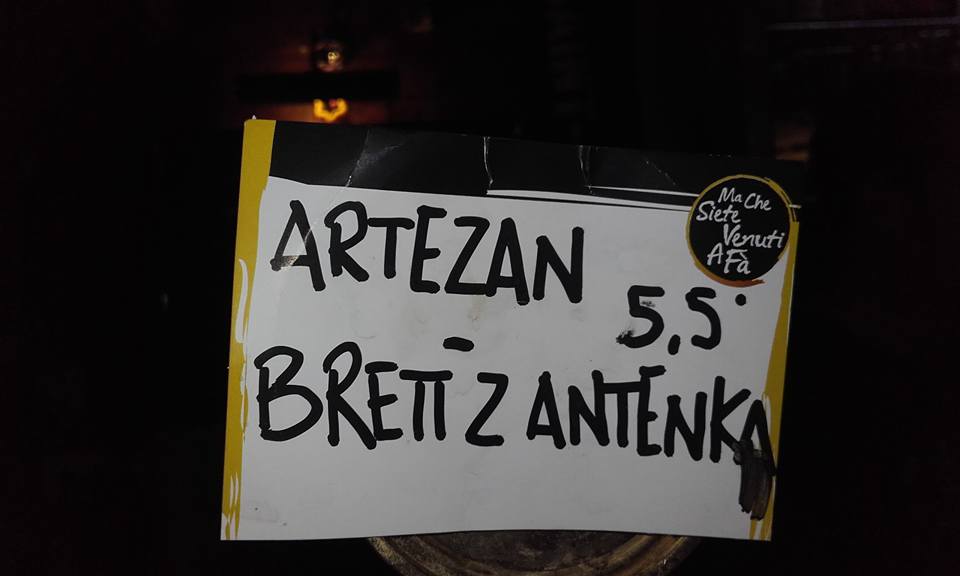 Ma Che
Siete
Venuti
A Fà
ARTEZAN
5,5°
-
BRETT Z ANTENKA